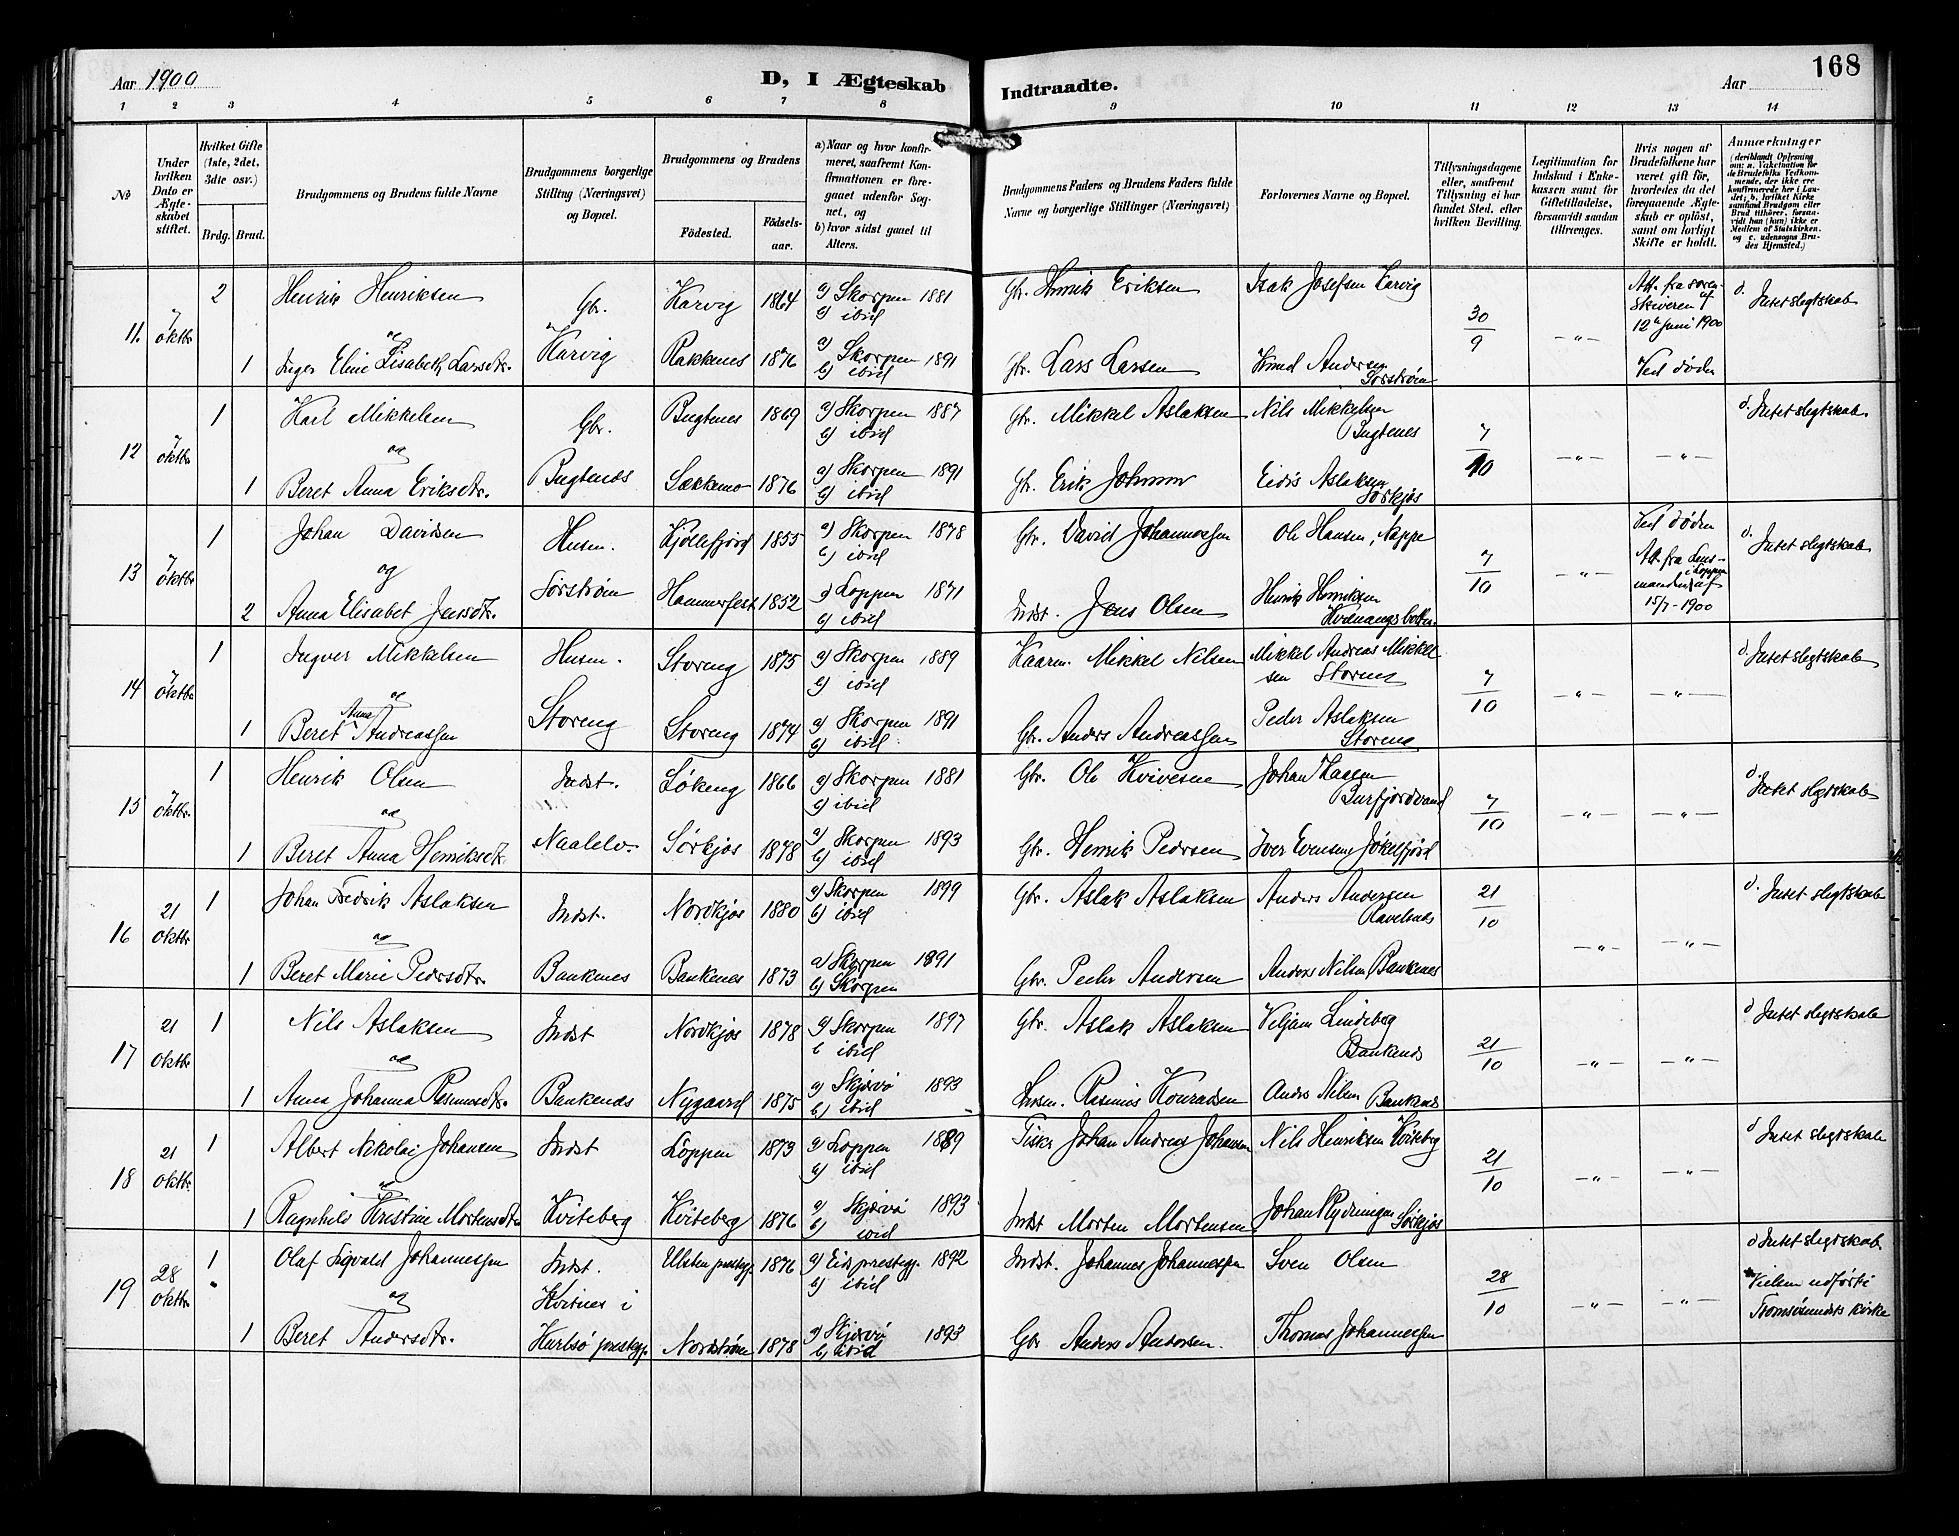 Aar 1900
D, I Ægteskab
Indtraadte.
Aar
168
1 2 3 4 5 6 7 8 9 10 11 12 13 14
No
Under hvilken Dato er Ægteskabet stiftet.
Hvilket Gifte (1ste, 2det, 3die osv.)
Brdg. Brud.
Brudgommens og Brudens fulde Navne
Brudgommens borgerlige Stilling (Næringsvei) og Bopæl.
Brudgommens og Brudens
Fødested.
Fødselsaar.
a) Naar og hvor konfirmeret, saafremt Konfirmationen er foregaaet udenfor Sognet, og
b) hvor sidst gaaet til Alters.
Brudgommens Faders og Brudens Faders fulde Navne og borgerlige Stillinger (Næringsvei)
Forlovernes Navne og Bopæl.
Tillysningsdagene eller, saafremt Tillysning ei har fundet Sted, efter hvilken Bevilling.
Legitimation for Indskud i Enkekassen samt for Giftetilladelse, forsaavidt saadan tiltrænges.
Hvis nogen af Brudefolkene har været gift før, hvorledes da det foregaaende Ægteskab er opløst, samt om lovligt Skifte er holdt.
Anmærkninger
(deriblandt Oplysning om: a. Vakcination for de Brudefolks Vedkommende, der ikke ere konfirmerede her i Landet; b. hvilket Kirkesamfund Brudgom eller Brud tilhører, forsaavidt han (hun) ikke er Medlem af Statskirken, og c. udensogns Brudes Hjemsted.)
11. 7 oktbr 2 Henrik Henriksen Gbr. Karvig 1864 a) Skorpen 1881 b) ibid Gbr. Henrik Eriksen Isak Josefsen Karvig 30/9 -"- Att. fra sorenskiveren af 12te Juni 1900 d. Intet slegtskab
og
1 Inger Eline Elisabeth Larsdtr. Karvig Rakkenes 1876 a) Skorpen 1891 b) ibid Gbr. Lars Larsen Knud Andersen Sørstrøm Ved døden
12 7 oktbr 1 Karl Mikkelsen Gbr. Bugtenes 1869 a) Skorpen 1887 b) ibid Gbr. Mikkel Aslaksen Nils Mikkelsen Bugtenes 7/10 -"- -"- d. Intet slegtskab
og
1 Beret Anna Eriksdtr. Bugtenes Sækkemo 1876 a) Skorpen 1891 b) ibid Gbr. Erik Johnsen Aslaksen Sørkjos
13 7 oktbr 1 Johan Davidsen Husm. Kjøllefjord 1855 a) Skorpen 1878 b) ibid Gbr. David Johannessen Ole Hansen, Nappe 7/10 -"- Ved døden Att. fra Lensmanden i Loppen af 15/7-1900 d. Intet slegtskab
og
2 Anna Elisabet Jensdtr. Sørstrøm Hammerfest 1852 a) Loppen 1871 b) ibid Indst. Jens Olsen Henrik Henriksen Kvænangsbotten.
14 7 oktbr 1 Ingver Mikkelsen Husm. Storeng 1875 a) Skorpen 1889 b) ibid Kaarm. Mikkel Nilsen Mikkel Andreas Mikkelsen Storeng 7/10 -"- -"- d. Intet slegtskab
og
1 Beret Anna Andreassen Storeng Storeng 1874 a) Skorpen 1891 b) ibid Gbr. Anders Andreassen Peder Aslaksen Storeng
15 7 oktbr. 1 Henrik Olsen Indst. Løkeng 1866 a) Skorpen 1881 b) ibid Gbr. Ole Kvivesen Johan Burfjordvand 7/10 -"- -"- d. Intet slegtskab
og
1 Beret Anna Henriksdtr. Naalelv. Sørkjos 1878 a) Skorpen 1893 b) ibid Gbr. Henrik Pedersen Iver Evensen Jøkelfjord
16 21 oktbr. 1 Johan Fredrik Aslaksen Indst. Nordkjos 1880 a) Skorpen 1899 b) ibid Gbr. Aslak Aslaksen Anders Andersen Ravelsnes 21/10 -"- -"- d. Intet slegtskab
og
1 Beret Marie Pedersdtr. Bankenes Bankenes 1873 a) Skorpen 1891 b) Skorpen Gbr. Peder Andersen Anders Nilsen Bankenes
17 21 oktbr 1 Nils Aslaksen Indst Nordkjos 1878 a) Skorpen 1897 b ibid Gbr. Aslak Aslaksen Viljam Lindeberg Bankenes 21/10 -"- -"- d Intet slegtskab
og
1 Anna Johanna Rasmusdtr. Bankenes Nygaard 1875 a) Skjærvø 1893 b) ibid Rasmus Konradsen Anders Nilsen Bankenes
18 21 oktbr. 1 Albert Nikolai Johansen Indst Loppen 1873 a) Loppen 1889 b) ibid Fisker Johan Andreas Johansen Nils Henriksen Kviteberg 21/10 -"- -"- d Intet slegtskab
og
1 Ragnhild Kristine Mortensdtr Kviteberg Kviteberg 1876 a) Skjærvø 1893 b) ibid Indst Morten Mortensen Johan Sørkjos
19 28 oktbr. 1 Olaf Sigvald Johannessen Indst. Ulsten prestegj. 1876 a) Eids prestegj. 1892 b) ibid Indst. Johannes Johannessen Sven Olsen 28/10 -"- -"- d Intet slegtskab
og Kvitnes i Vielsen udført i
1 Beret Andersdtr. Hurlsø prestegj. Nordstrøm 1878 a) Skjærvø 1893 b) ibid Gbr Anders Andersen. Thomas Johannessen Tromsøsundets kirke